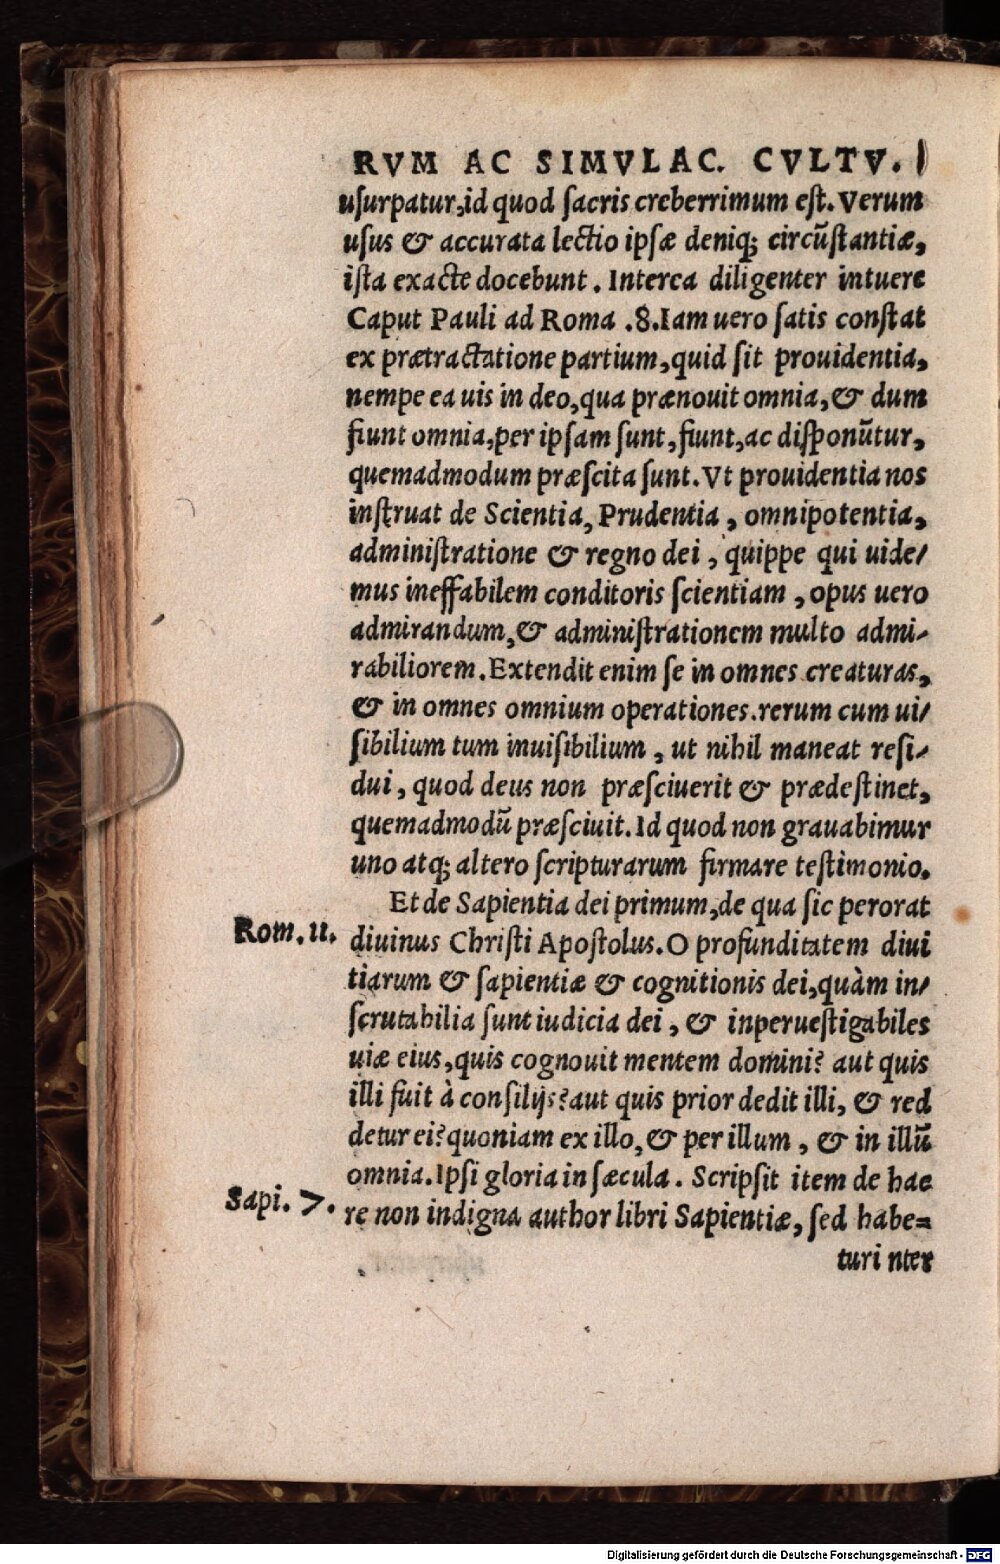 RVM AC SIMVLAC. CVLTV.
uſurpatur,id quod ſacris creberrimum eſt. Verum
uſus & accurata lectio ipſæ deniq; circũſtantiæ,
iſta exacte docebunt. Interea diligenter intuere
Caput Pauli ad Roma .8.Iam uero ſatis conſtat
ex prætractatione partium,quid ſit prouidentia,
nempe ea uis in deo,qua prænouit omnia,& dum
fiunt omnia,per ipſam ſunt,fiunt,ac diſponũtur,
quemadmodum præſcita ſunt.Vt prouidentia nos
inſtruat de Scientia, Prudentia, omnipotentia,
adminiſtratione & regno dei, quippe qui uide/
mus ineffabilem conditoris ſcientiam, opus uero
admirandum,& adminiſtrationem multo admi-
rabiliorem.Extendit enim ſe in omnes creaturas,
& in omnes omnium operationes.rerum cum ui/
ſibilium tum inuiſibilium, ut nihil maneat reſi-
dui, quod deus non præſciuerit & prædeſtinet,
quemadmodũ præſciuit. Id quod non grauabimur
uno atq; altero ſcripturarum firmare teſtimonio.
Et de Sapientia dei primum,de qua ſic perorat
Rom. 11. diuinus Chriſti Apoſtolus.O profunditatem diui
tiarum & ſapientiæ & cognitionis dei,quàm in/
ſcrutabilia ſunt iudicia dei, & inperueſtigabiles
uiæ eius,quis cognouit mentem domini? aut quis
illi fuit à conſilijs?aut quis prior dedit illi, & red
detur ei?quoniam ex illo,& per illum, & in illũ
omnia.Ipſi gloria in ſæcula. Scripſit item de hac
Sapi. 7. re non indigna author libri Sapientiæ, ſed habe=
turi nter
Digitalisierung gefördert durch die Deutsche Forschungsgemeinschaft - DFG